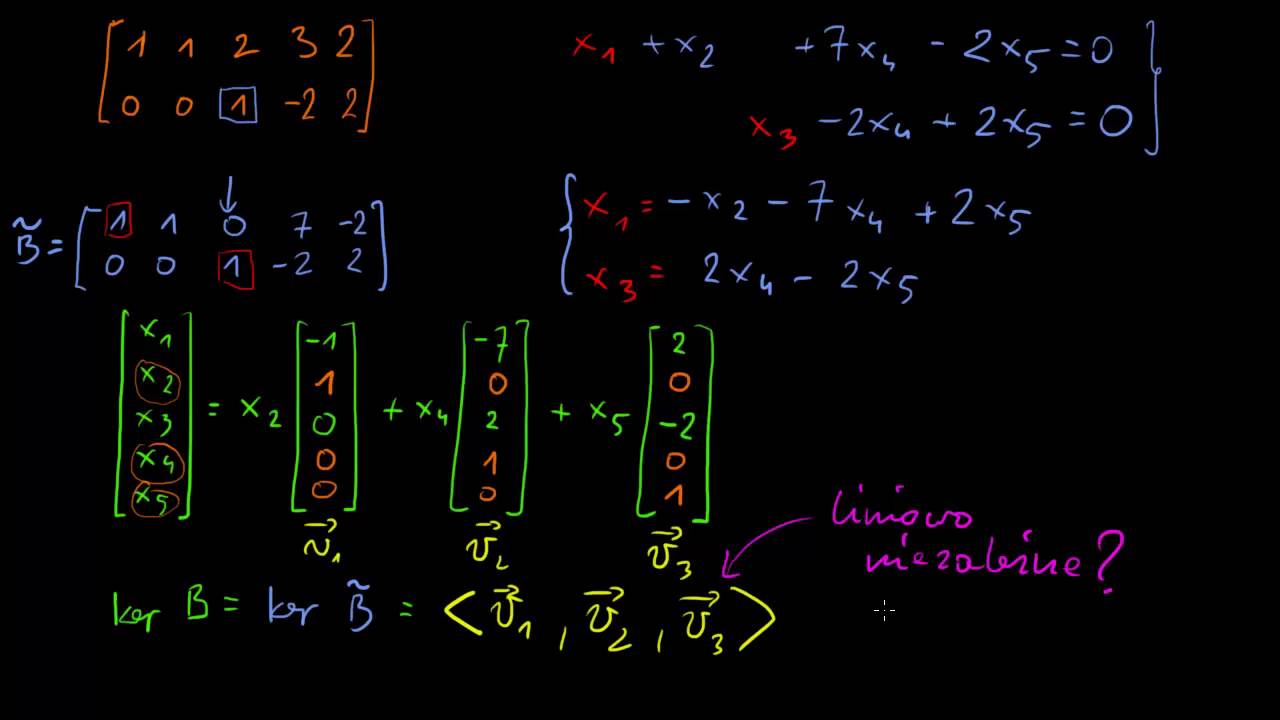 [1 1 2 3 2]
[0 0 1 -2 2]
x₁ + x₂ + 7x₄ - 2x₅ = 0
x₃ - 2x₄ + 2x₅ = 0
B̃ = [1 1 0 7 -2]
[0 0 1 -2 2]
x₁ = -x₂ - 7x₄ + 2x₅
x₃ = 2x₄ - 2x₅
[x₁ x₂ x₃ x₄ x₅] = x₂ [-1 1 0 0 0] + x₄ [-7 0 2 1 0] + x₅ [2 0 -2 0 1]
v⃗₁ v⃗₂ v⃗₃
liniowo
niezależne?
ker B = ker B̃ = <v⃗₁, v⃗₂, v⃗₃>